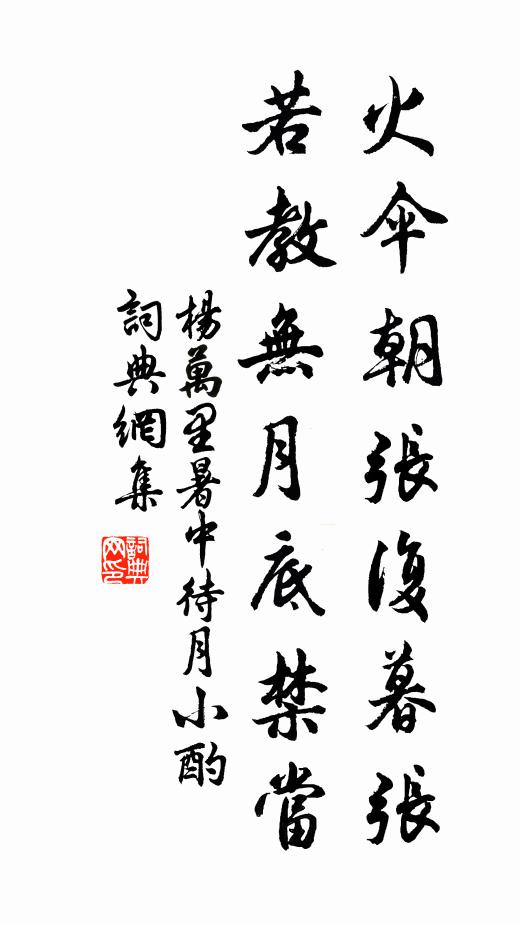 火傘朝張復暮張
若教無月底禁當
楊萬里暑中待月小酌
詞典網集
詞典網印